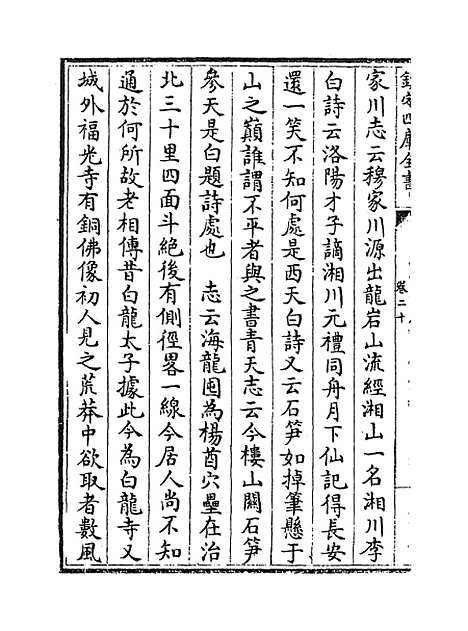 欽定四庫全書
卷二十
家川志云穆家川源出龍岩山流經湘山一名湘川李
白詩云洛陽才子謫湘川元禮同舟月下仙記得長安
還一笑不知何處是西天白詩又云石笋如掉筆懸于
山之巔誰謂不平者與之書青天志云今樓山關石笋
參天是白題詩處也　志云海龍囤為楊酋穴壘在治
北三十里四面斗絶後有側徑畧一線今居人尚不知
通於何所故老相傳昔白龍太子據此今為白龍寺又
城外福光寺有銅佛像初人見之荒莽中欲取者數風